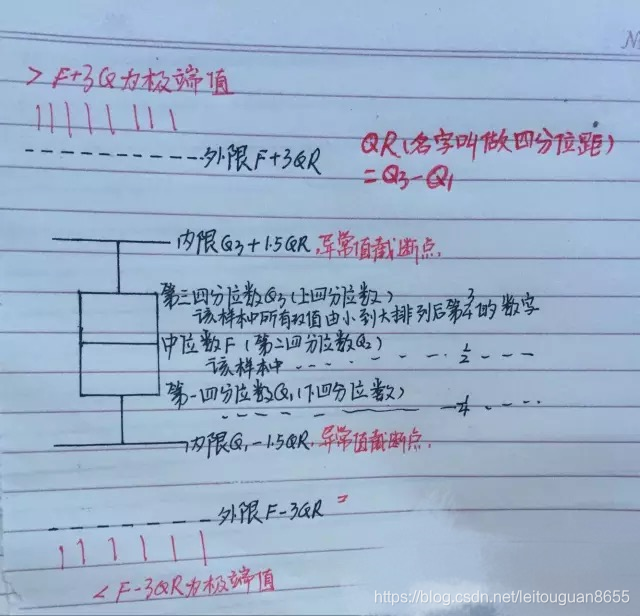 >F+3Q为极端值
外限F+3QR
QR(名字叫做四分位距)
=Q3-Q1
内限Q3+1.5QR,异常值截断点.
第三四分位数Q3(上四分位数)
该样本中所有数值由小到大排列后第3/4的数字
中位数F(第二四分位数Q2)
该样本中 1/2
第一四分位数Q1(下四分位数)
1/4
内限Q1-1.5QR,异常值截断点.
外限F-3QR =
<F-3QR为极端值
https://blog.csdn.net/leitouguan8655